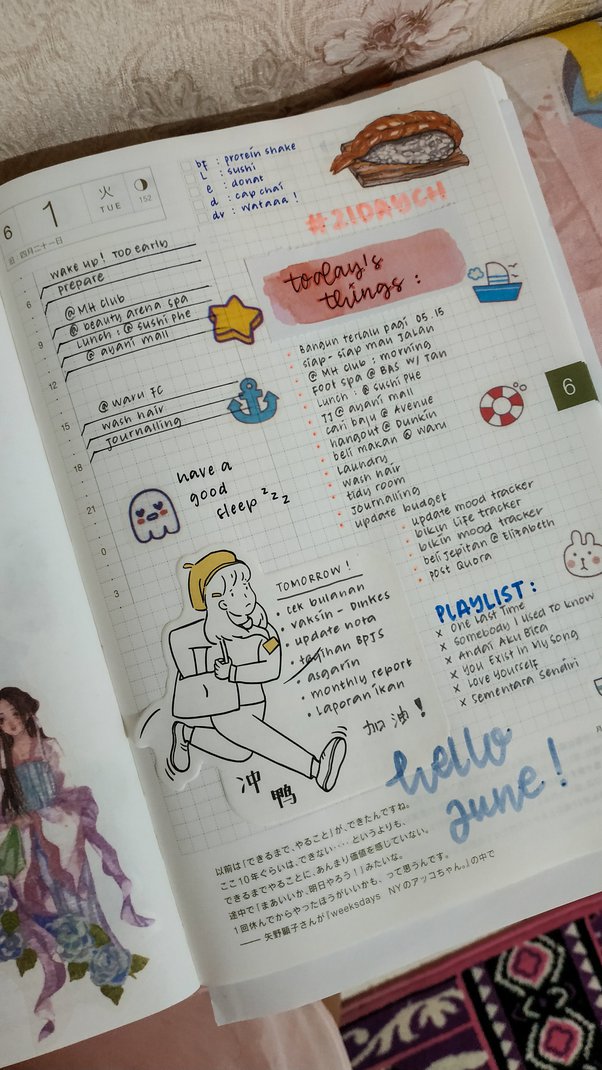 6 1 火 TUE 152
旧 四月二十一日
bf : protein shake
L : sushi
e : donat
d : cap chai
dv : wataaa !
#21DAYCH
wake up! Too early
prepare
@ MH club
@ beauty arena spa
Lunch : @ sushi phe
@ ayani mall
@ waru FC
wash hair
journalling
6
9
12
15
18
21
0
3
today's
things :
Bangun terlalu pagi 05.15
siap-siap mau jalan
@ MH club : morning
Foot spa @ BAS w/ Tan
Lunch : @ sushi PHE
JJ @ ayani mall
cari baju @ Avenue
hangout @ Dunkin
beli makan @ waru
Laundry
wash hair
tidy room
Journalling
update budget
update mood tracker
bikin life tracker
bikin mood tracker
beli jepitan @ Elizabeth
post Quora
6
have a
good
sleep zzzz
TOMORROW !
• cek bulanan
• vaksin - Dinkes
• update nota
• tagihan BPJS
• asgarin
• monthly report
• Laporan ikan
加油!
冲
鸭
PLAYLIST :
x One Last Time
x Somebody I Used to know
x Andai Aku Bisa
x You Exist in My Song
x Love Yourself
x Sementara Sendiri
hello
June!
以前は「できるまで、やること」が、できたんですね。
ここ10年ぐらいは、できない‥‥というよりも、
できるまでやることに、あんまり価値を感じていない。
途中で「まあいいか、明日やろう！」みたいな。
1回休んでからやったほうがいいかも、って思うんです。
―― 矢野顕子さんが『weeksdays NYのアッコちゃん。』の中で